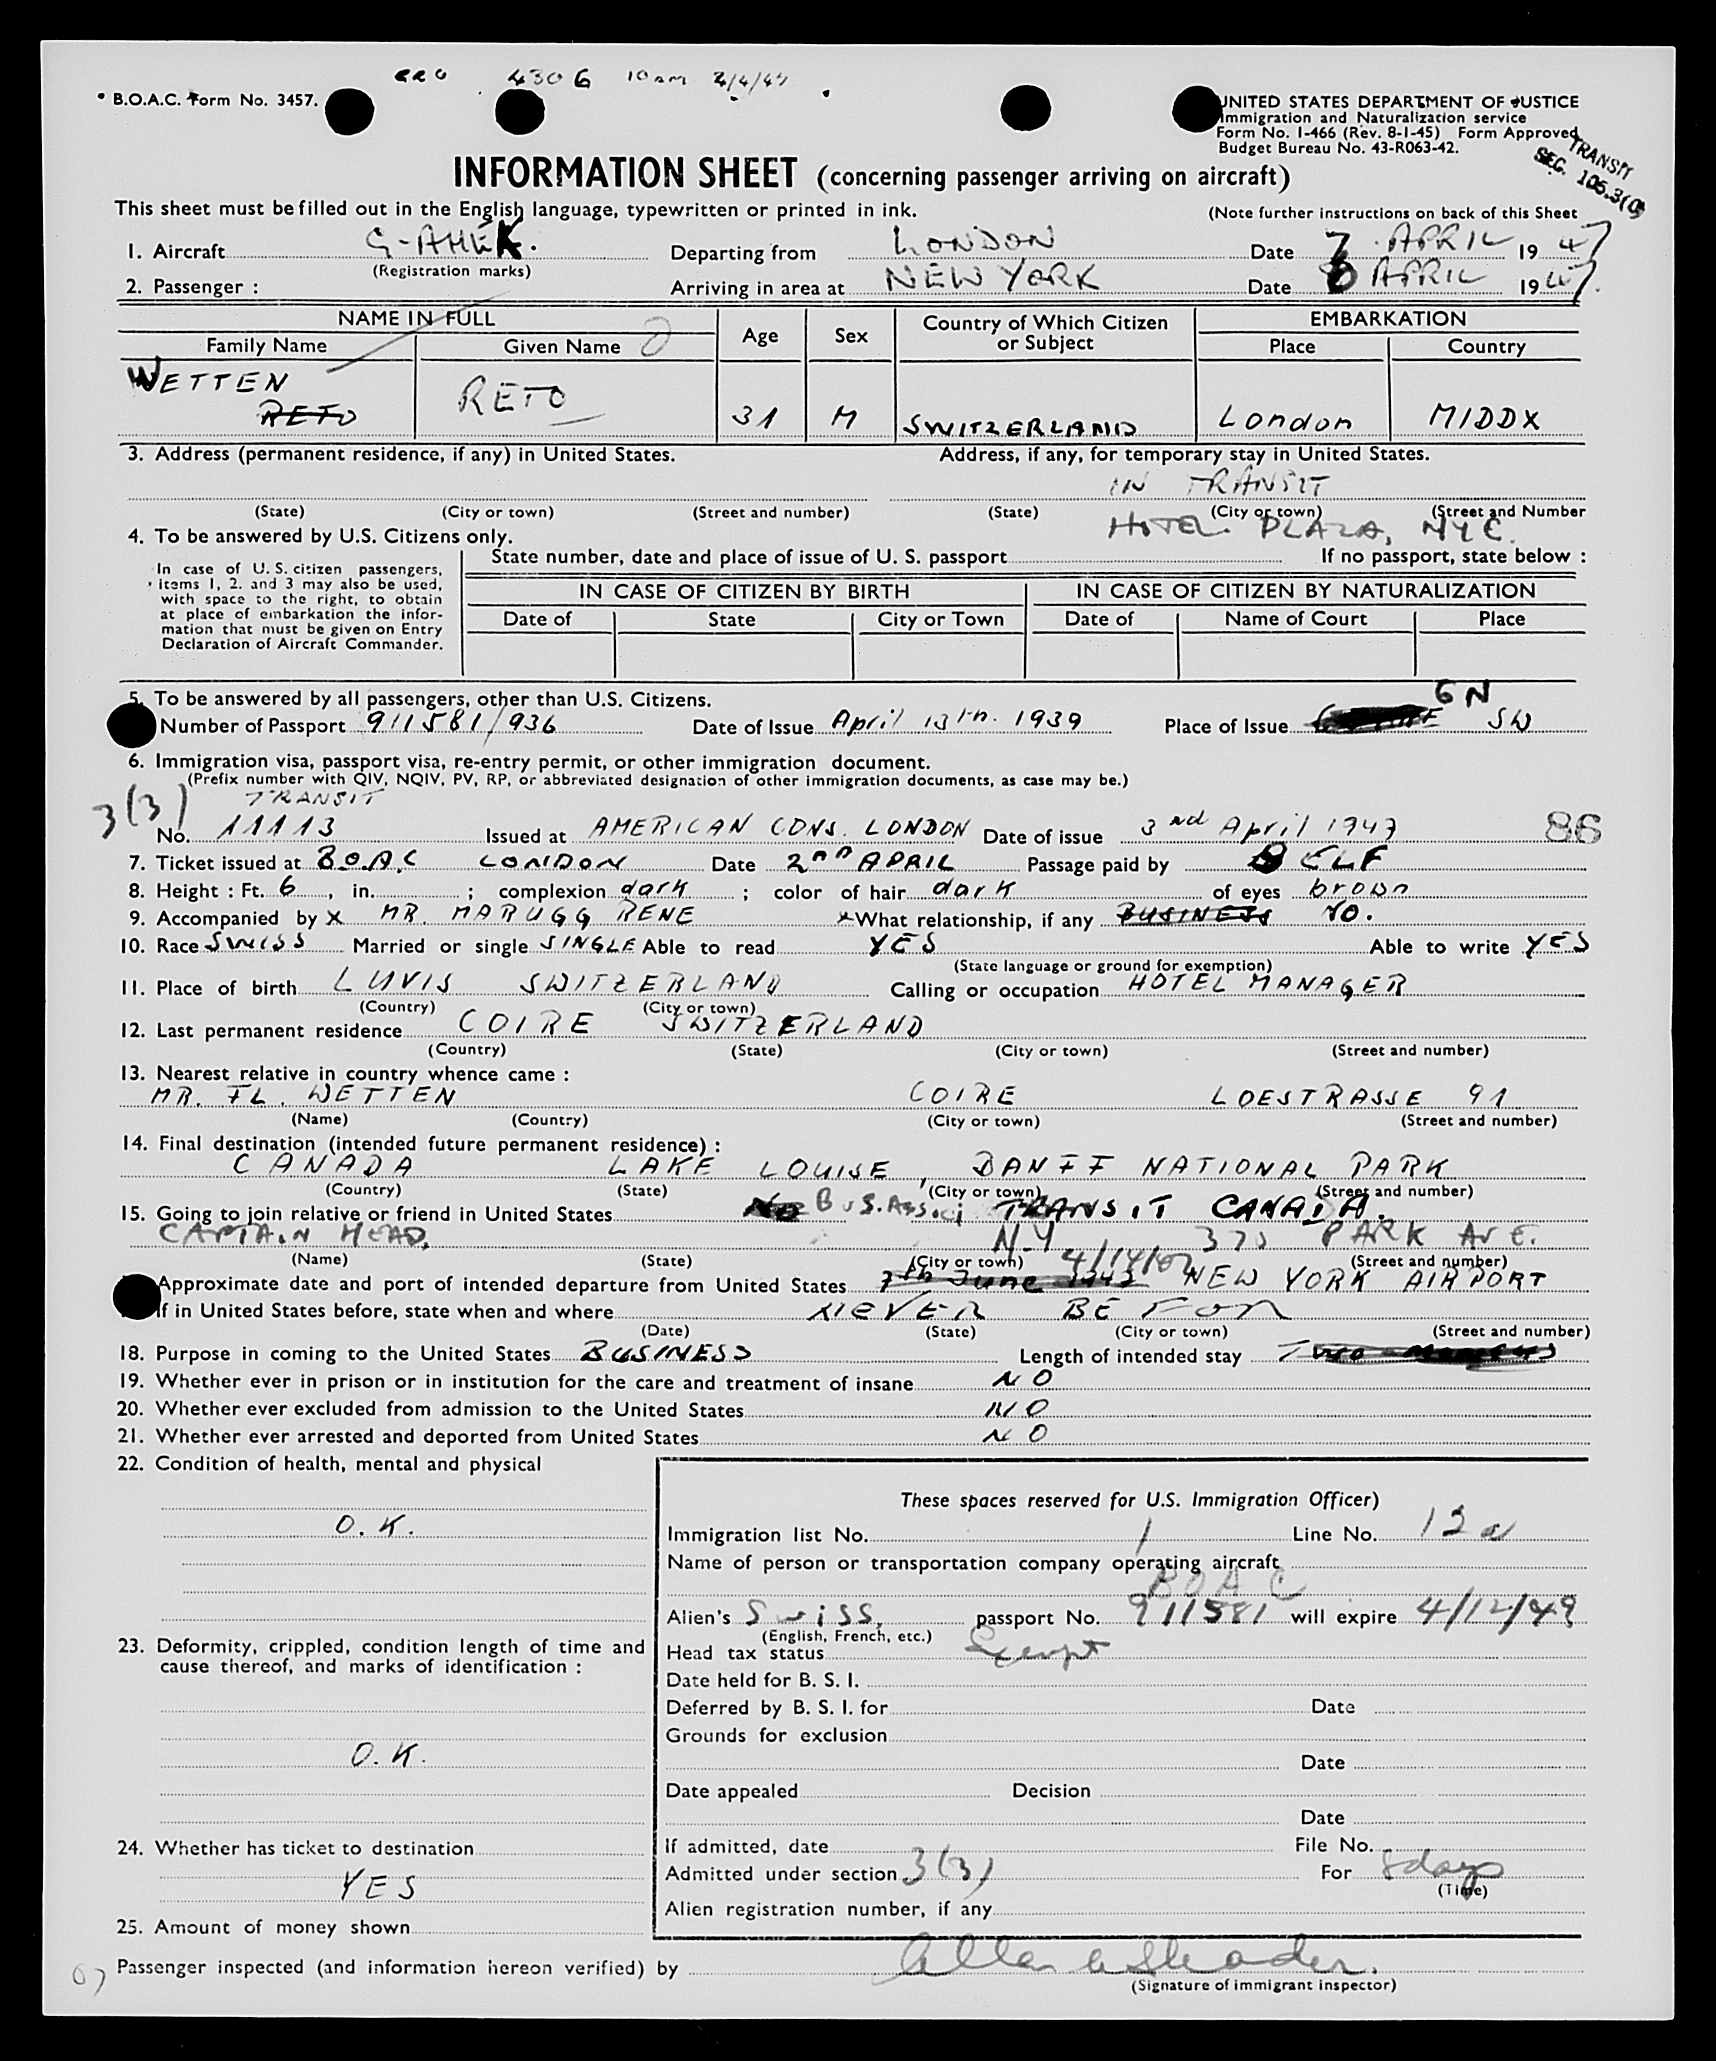 430 G 10 am 2/4/47
B.O.A.C. Form No. 3457.
UNITED STATES DEPARTMENT OF JUSTICE
Immigration and Naturalization service
Form No. I-466 (Rev. 8-1-45) Form Approved
Budget Bureau No. 43-R063-42.
TRANSIT
SEC. 106.3(0)
INFORMATION SHEET (concerning passenger arriving on aircraft)
This sheet must be filled out in the English language, typewritten or printed in ink.
(Note further instructions on back of this Sheet
1. Aircraft G-AHEK. Departing from LONDON Date 7 APRIL 1947
(Registration marks)
2. Passenger : Arriving in area at NEW YORK Date 8 APRIL 1947.
NAME IN FULL Age Sex Country of Which Citizen or Subject EMBARKATION
Family Name Given Name Place Country
WETTEN
RETO RETO 31 M SWITZERLAND London MIDDX
3. Address (permanent residence, if any) in United States. Address, if any, for temporary stay in United States.
IN TRANSIT
(State) (City or town) (Street and number) (State) (City or town) (Street and Number
HOTEL PLAZA, NYC.
4. To be answered by U.S. Citizens only.
State number, date and place of issue of U. S. passport If no passport, state below :
In case of U. S. citizen passengers,
items 1, 2. and 3 may also be used,
with space to the right, to obtain
at place of embarkation the infor-
mation that must be given on Entry
Declaration of Aircraft Commander.
IN CASE OF CITIZEN BY BIRTH IN CASE OF CITIZEN BY NATURALIZATION
Date of State City or Town Date of Name of Court Place
5. To be answered by all passengers, other than U.S. Citizens.
GN
Number of Passport 911581/936 Date of Issue April 13th. 1939 Place of Issue SW
6. Immigration visa, passport visa, re-entry permit, or other immigration document.
(Prefix number with QIV, NQIV, PV, RP, or abbreviated designation of other immigration documents, as case may be.)
3(3) TRANSIT
No. 11113 Issued at AMERICAN CONS. LONDON Date of issue 3nd April 1947 86
7. Ticket issued at B.O.A.C LONDON Date 2ND APRIL Passage paid by SELF
8. Height : Ft. 6, in. ; complexion dark ; color of hair dark of eyes brown
9. Accompanied by X MR. MARUGG RENE X What relationship, if any BUSINESS NO.
10. Race SWISS Married or single SINGLE Able to read YES Able to write YES
(State language or ground for exemption)
11. Place of birth LUVIS SWITZERLAND Calling or occupation HOTEL MANAGER
(Country) (City or town)
12. Last permanent residence COIRE SWITZERLAND
(Country) (State) (City or town) (Street and number)
13. Nearest relative in country whence came :
MR. FL. WETTEN COIRE LOESTRASSE 91
(Name) (Country) (City or town) (Street and number)
14. Final destination (intended future permanent residence) :
CANADA LAKE LOUISE, BANFF NATIONAL PARK
(Country) (State) (City or town) (Street and number)
15. Going to join relative or friend in United States No BUS. ASSOCI TRANSIT CANADA.
CAPTAIN HEAD, N.Y 370 PARK AVE.
(Name) (State) (City or town) (Street and number)
4/14/47
Approximate date and port of intended departure from United States 7th June 1947 NEW YORK AIRPORT
If in United States before, state when and where NEVER BEFOR
(Date) (State) (City or town) (Street and number)
18. Purpose in coming to the United States BUSINESS Length of intended stay Two
19. Whether ever in prison or in institution for the care and treatment of insane NO
20. Whether ever excluded from admission to the United States NO
21. Whether ever arrested and deported from United States NO
22. Condition of health, mental and physical
O.K.
23. Deformity, crippled, condition length of time and
cause thereof, and marks of identification :
O.K.
24. Whether has ticket to destination
YES
25. Amount of money shown
These spaces reserved for U.S. Immigration Officer)
Immigration list No. 1 Line No. 12
Name of person or transportation company operating aircraft
BOAC
Alien's Swiss, passport No. 911581 will expire 4/12/49
(English, French, etc.)
Head tax status Exempt
Date held for B. S. I.
Deferred by B. S. I. for Date
Grounds for exclusion
Date
Date appealed Decision
Date
If admitted, date File No.
Admitted under section 3(3) For 8 days
(Time)
Alien registration number, if any
Passenger inspected (and information hereon verified) by
(Signature of immigrant inspector)